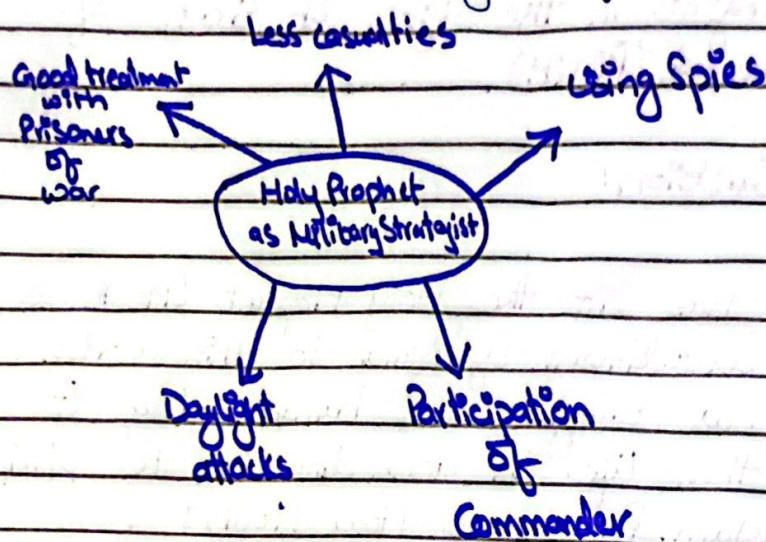 Less casualties
Good treatment
with
Prisoners
of
war
Using Spies
Holy Prophet
as Military Strategist
Daylight
attacks
Participation
of
Commander